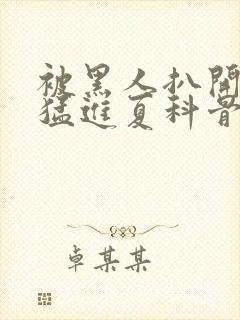 被黑人扒開
猛進夏科骨
卓某某